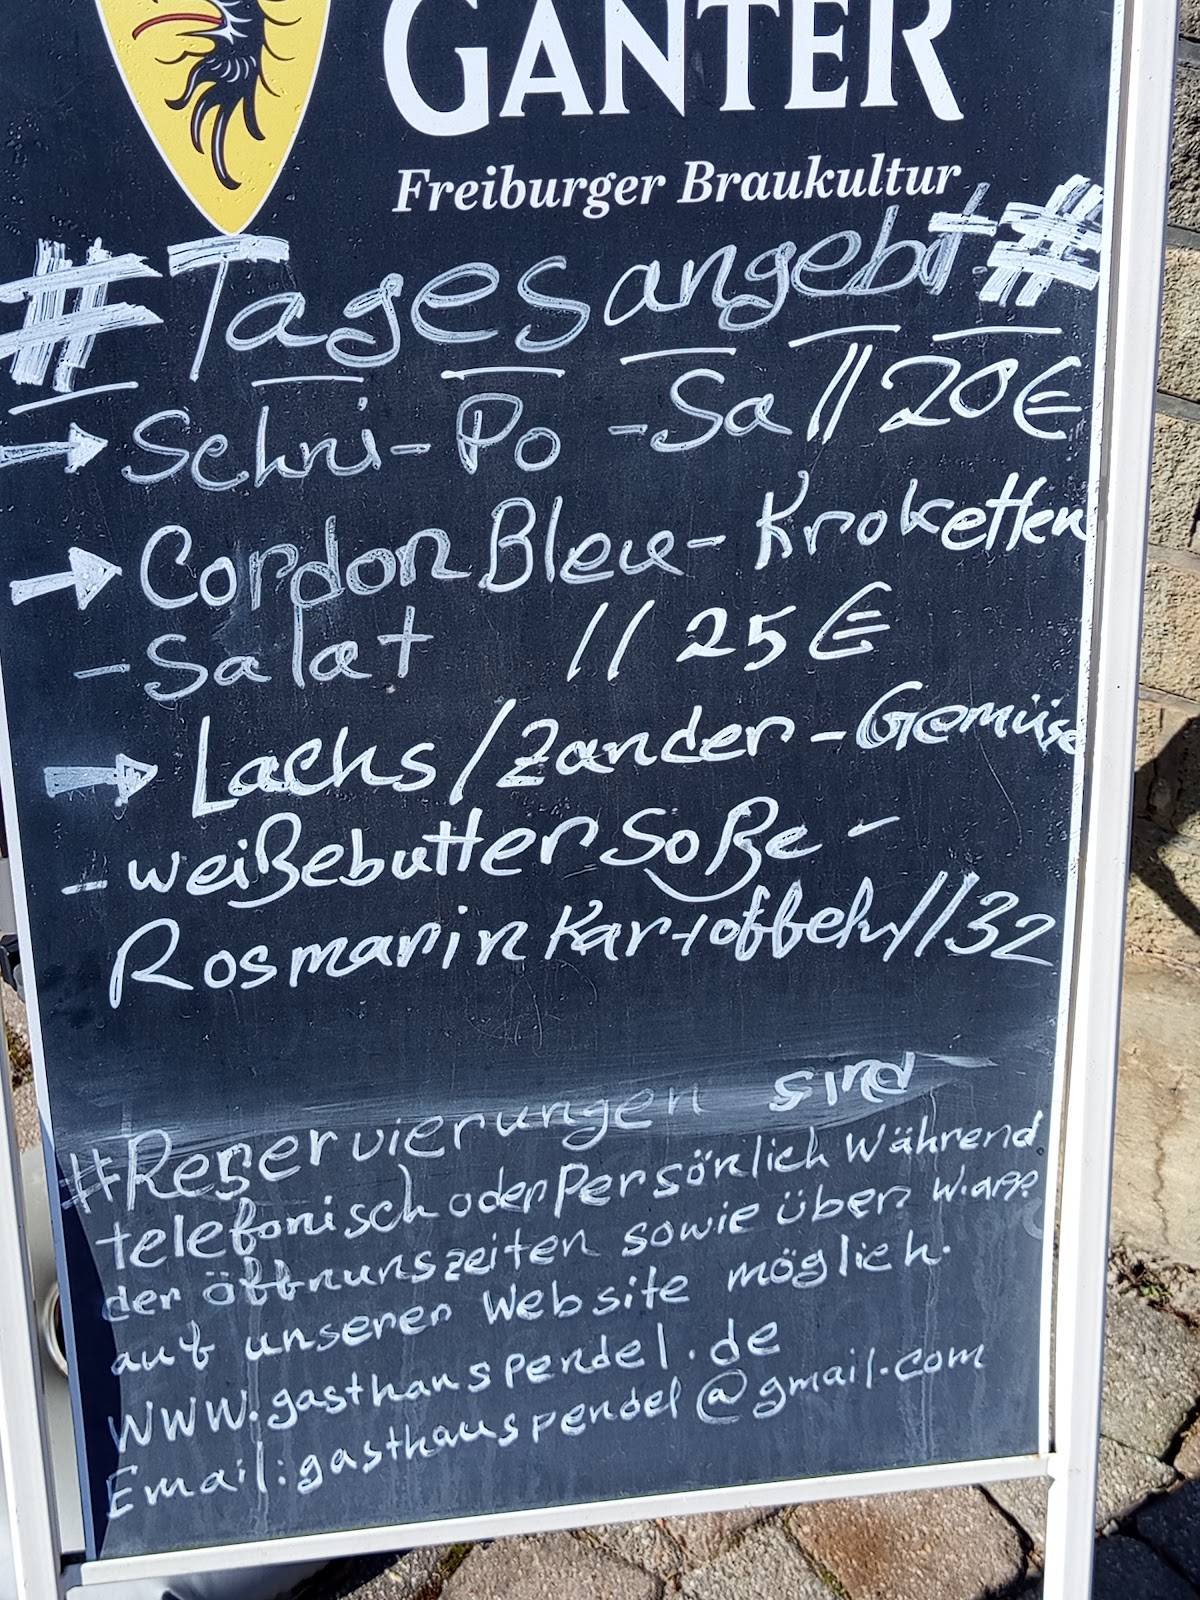 GANTER
Freiburger Braukultur
# Tagesangebt #
→ Schni-Po -Sa // 20€
→ Cordon Bleu- Kroketten
-Salat // 25€
→ Lachs/Zander-Gemüse
-weißebutter Soße -
Rosmarin Kartoffeln // 32
#Reservierungen sind
telefonisch oder Persönlich Während
der öffnunszeiten sowie über W.app
auf unserer Website möglich.
WWW.gasthauspendel.de
Email:gasthauspendel@gmail.com